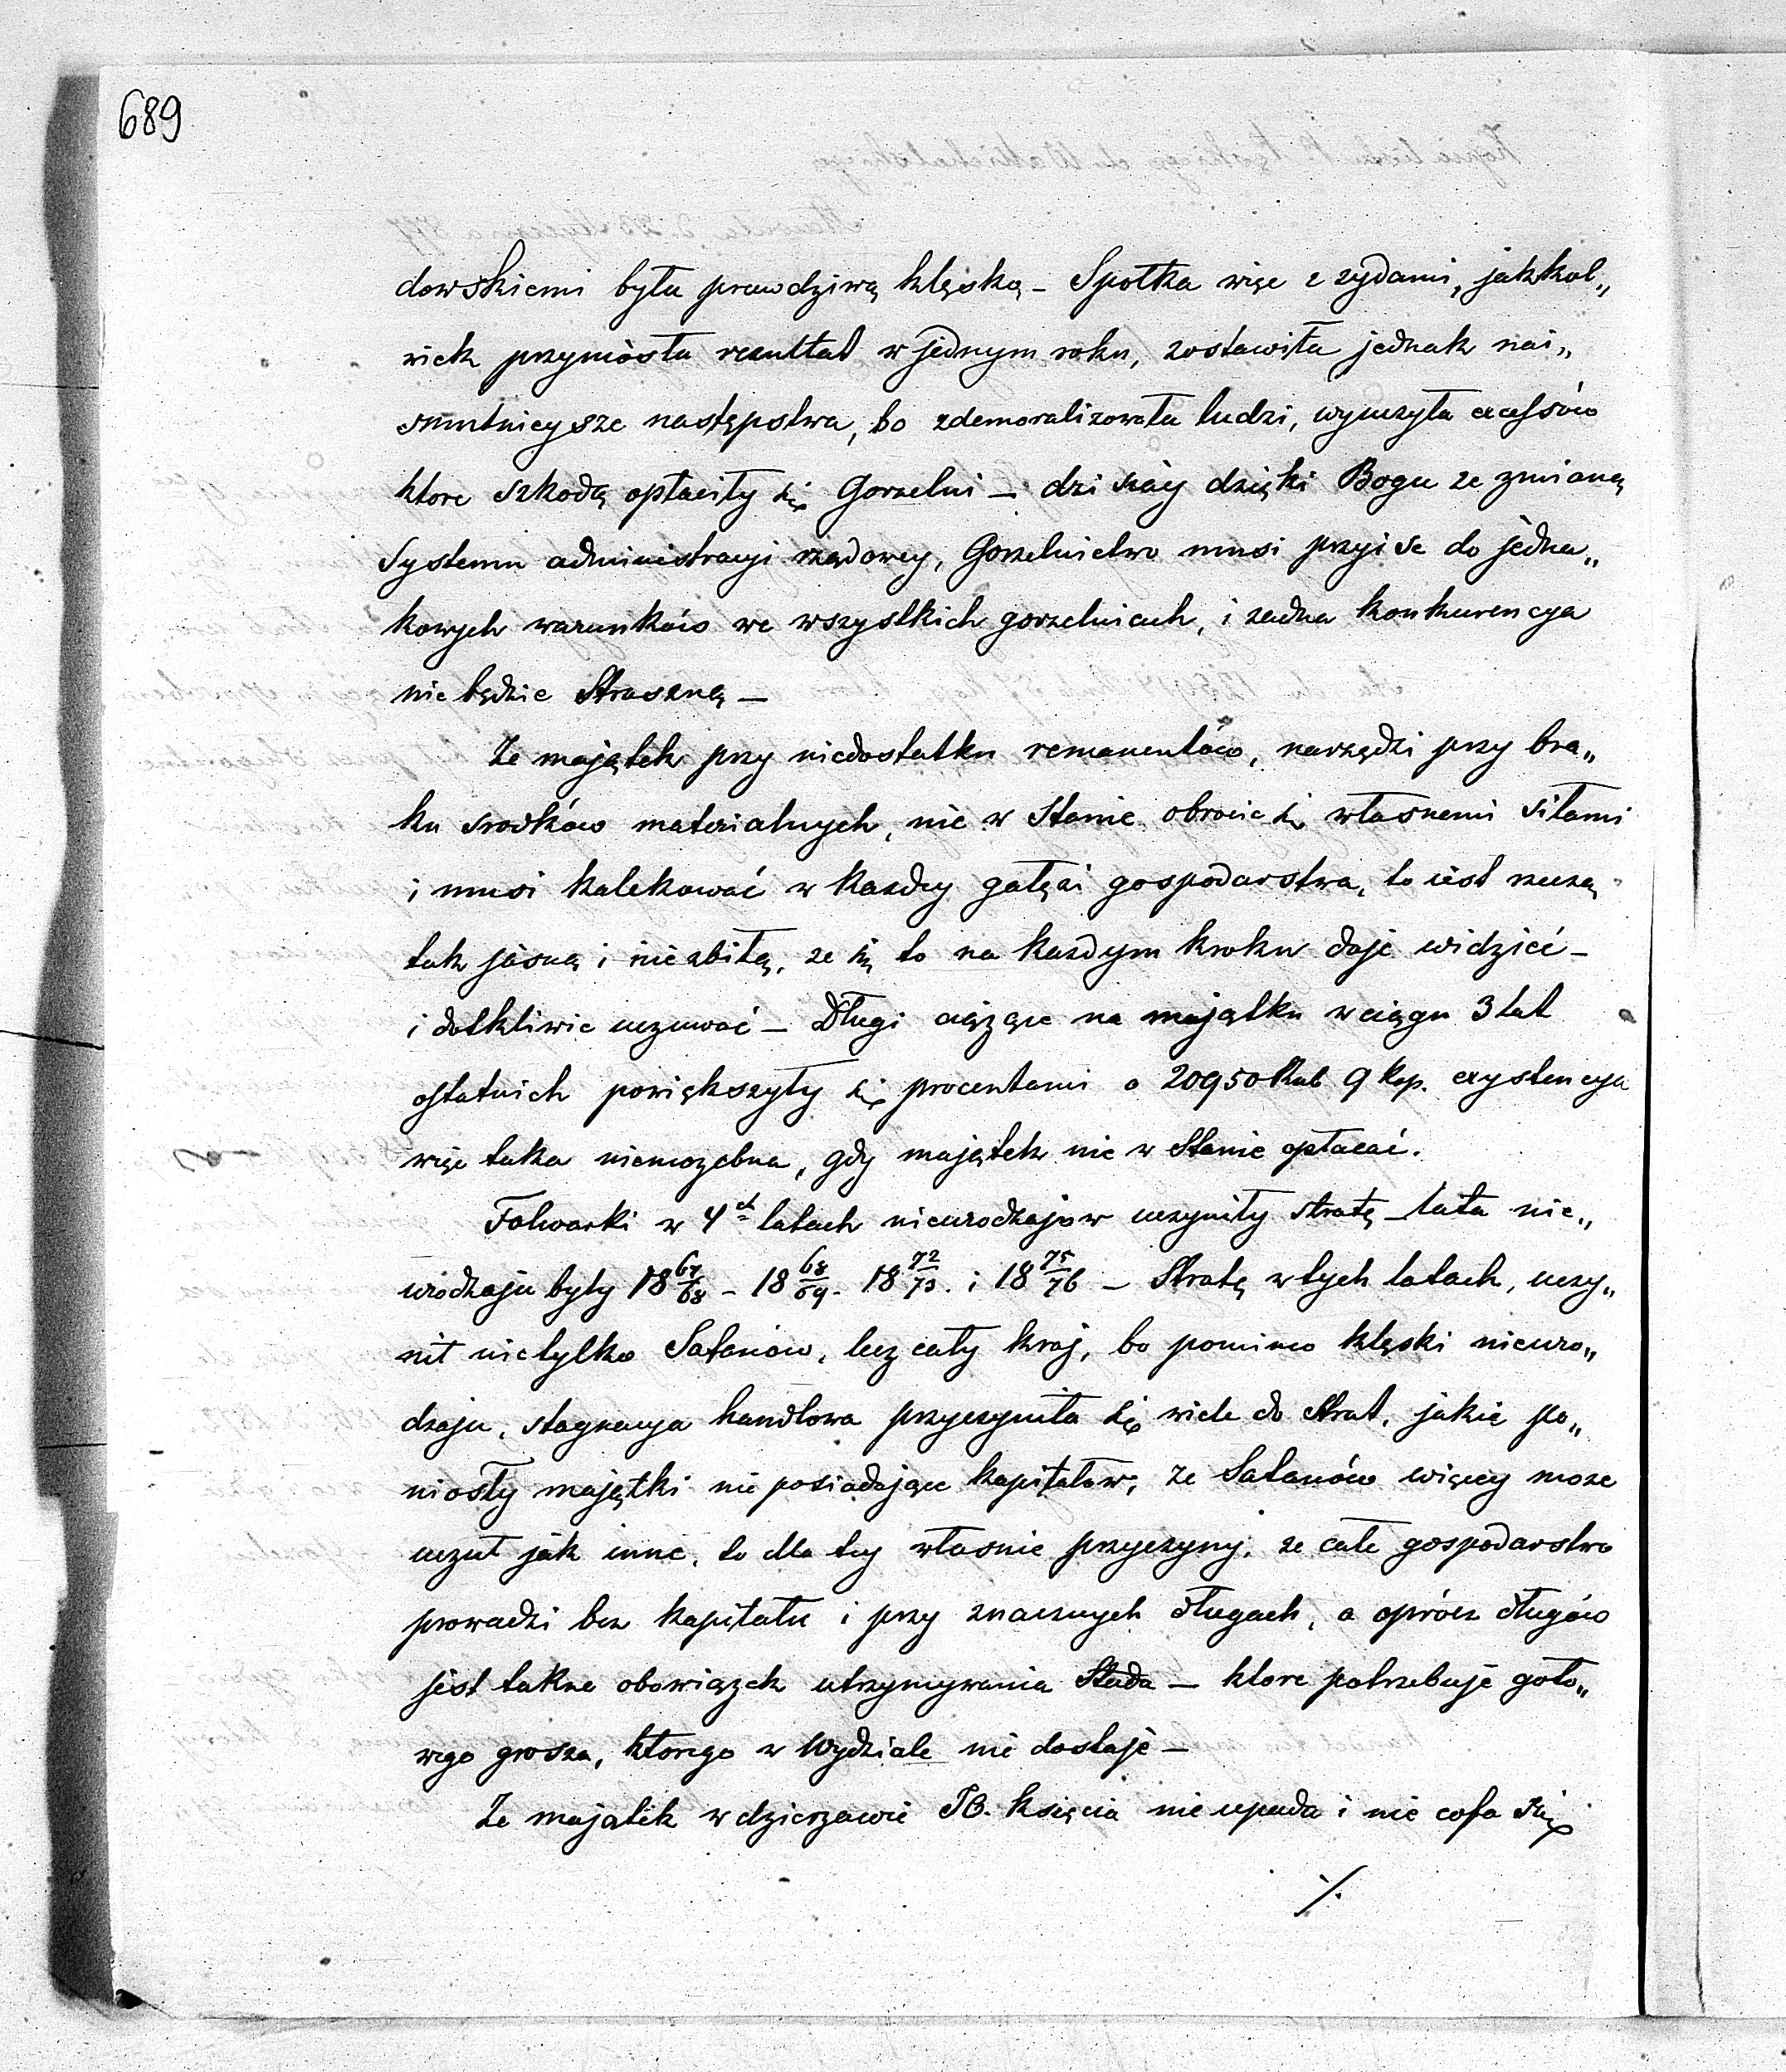 689
dowskiemi była prawdziwą klęską – Spółka więc z zydami, jakkol„
wiek przyniosła rezultat w jednym roku, zostawiła jednak nai„
smutnieysze następstwa, bo zdemoralizowała ludzi, wyuczyła excessów
ktore szkodą opłaciły się Gorzelni – dzisiay dzięki Bogu ze zmianą
Systemu administracyi rządowey, Gorzelnictwo musi przyise do jedna„
kowych warunków we wszystkich gorzelniach, i zadna konkurencya
nie będzie Straszną –
Ze majątek przy niedostatku remanentów, narzędzi przy bra„
ku srodków materialnych, nie w Stanie obrocic się własnemi siłami
i musi kalekować w kazdey gałęzi gospodarstwa, to iest rzeczą
tak jasną i niezbitą, ze się to na kazdym kroku daje widzieć –
i dotkliwie uczuwać – Długi ciążące na majątku w ciągu 3 lat
ostatnich powiększyły się procentami o 20950 Rub 9 kop. exystencya
więc taka niemozebna, gdy majątek nie w Stanie opłacać.
Folwarki w 4ch latach nieurodzajow uczyniły stratę – lata nie„
urodzaju były 18 67/68 – 18 68/69 – 18 72/73. i 18 75/76 – Stratę w tych latach, uczy„
nił nietylko Satanów, lecz cały kraj, bo pomimo klęski nieuro„
dzaju, stagnacya handlowa przyczyniła się wiele do strat, jakie po„
niosły majątki nie posiadające kapitałow; ze Satanów więcey moze
uczuł jak inne, to dla tey własnie przyczyny, ze całe gospodarstwo
prowadzi bez kapitału i przy znacznych długach, a oprócz długów
jest takze obowiązek utrzymywania Stada – ktore potrzebuje goto„
wego grosza, ktorego w Wydziale nie dostaje –
Ze majatek w dzierzawie JO. księcia nie upada i nie cofa się
./.